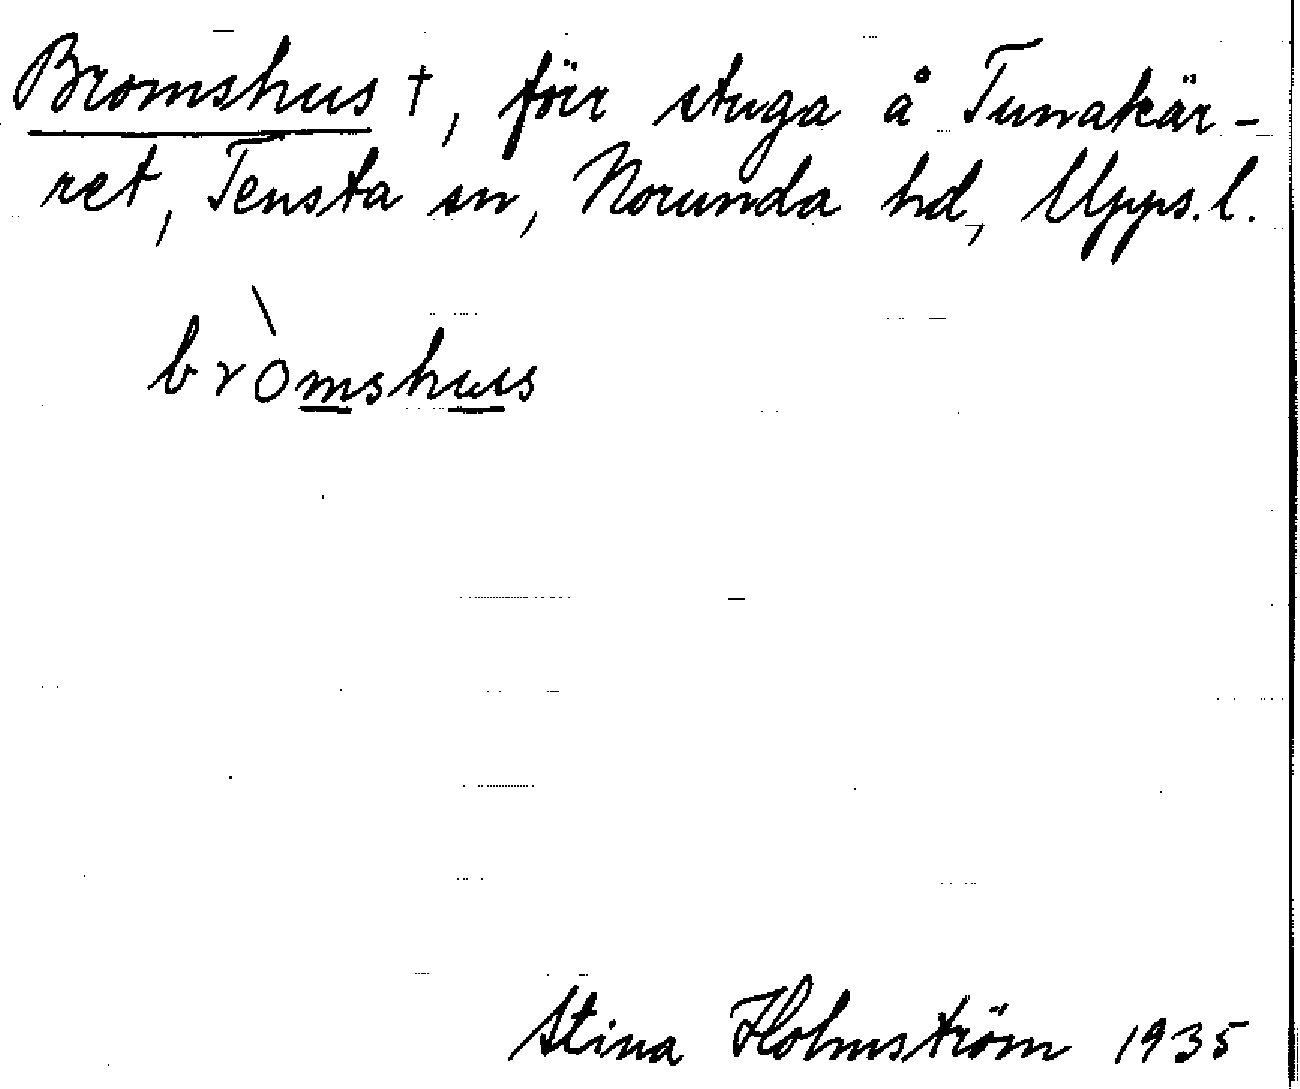 Bromshus †, förr stuga å Tunakär-
ret, Tensta sn, Norunda hd, Upps. l.
bròmshus
Stina Holmström 1935